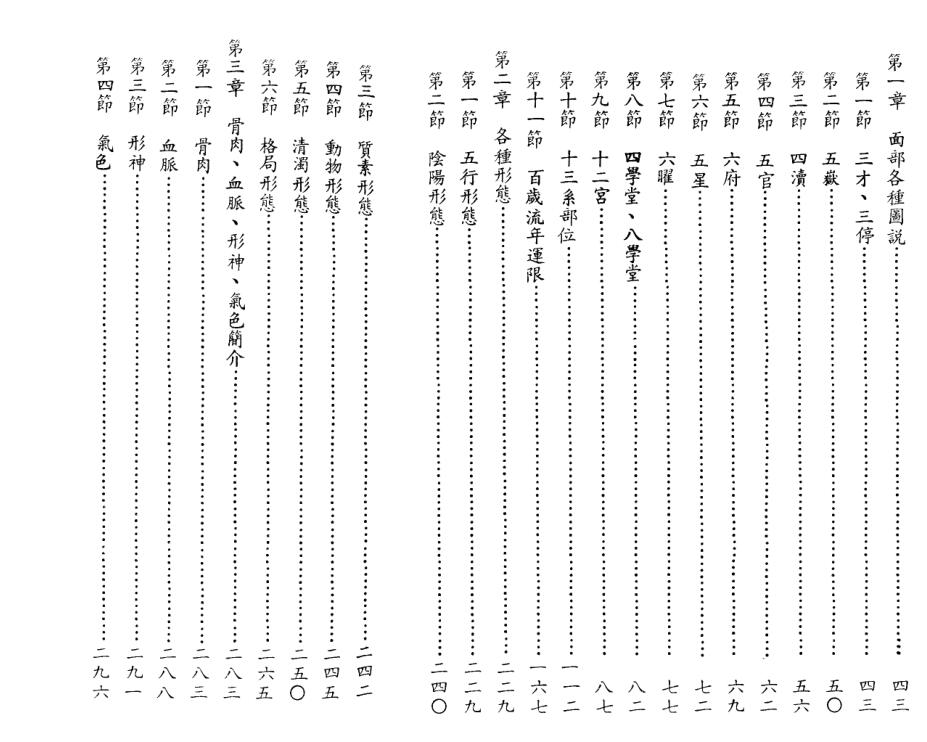 第一章　面部各種圖説……四三
第一節　三才、三停……四三
第二節　五嶽……五〇
第三節　四瀆……五六
第四節　五官……六二
第五節　六府……六九
第六節　五星……七二
第七節　六曜……七七
第八節　四學堂、八學堂……八二
第九節　十二宮……八七
第十節　十三系部位……一一二
第十一節　百歲流年運限……一六七
第二章　各種形態……二二九
第一節　五行形態……二二九
第二節　陰陽形態……二四〇
第三節　質素形態……二四二
第四節　動物形態……二四五
第五節　清濁形態……二五〇
第六節　格局形態……二六五
第三章　骨肉、血脈、形神、氣色簡介……二八三
第一節　骨肉……二八三
第二節　血脈……二八八
第三節　形神……二九一
第四節　氣色……二九六